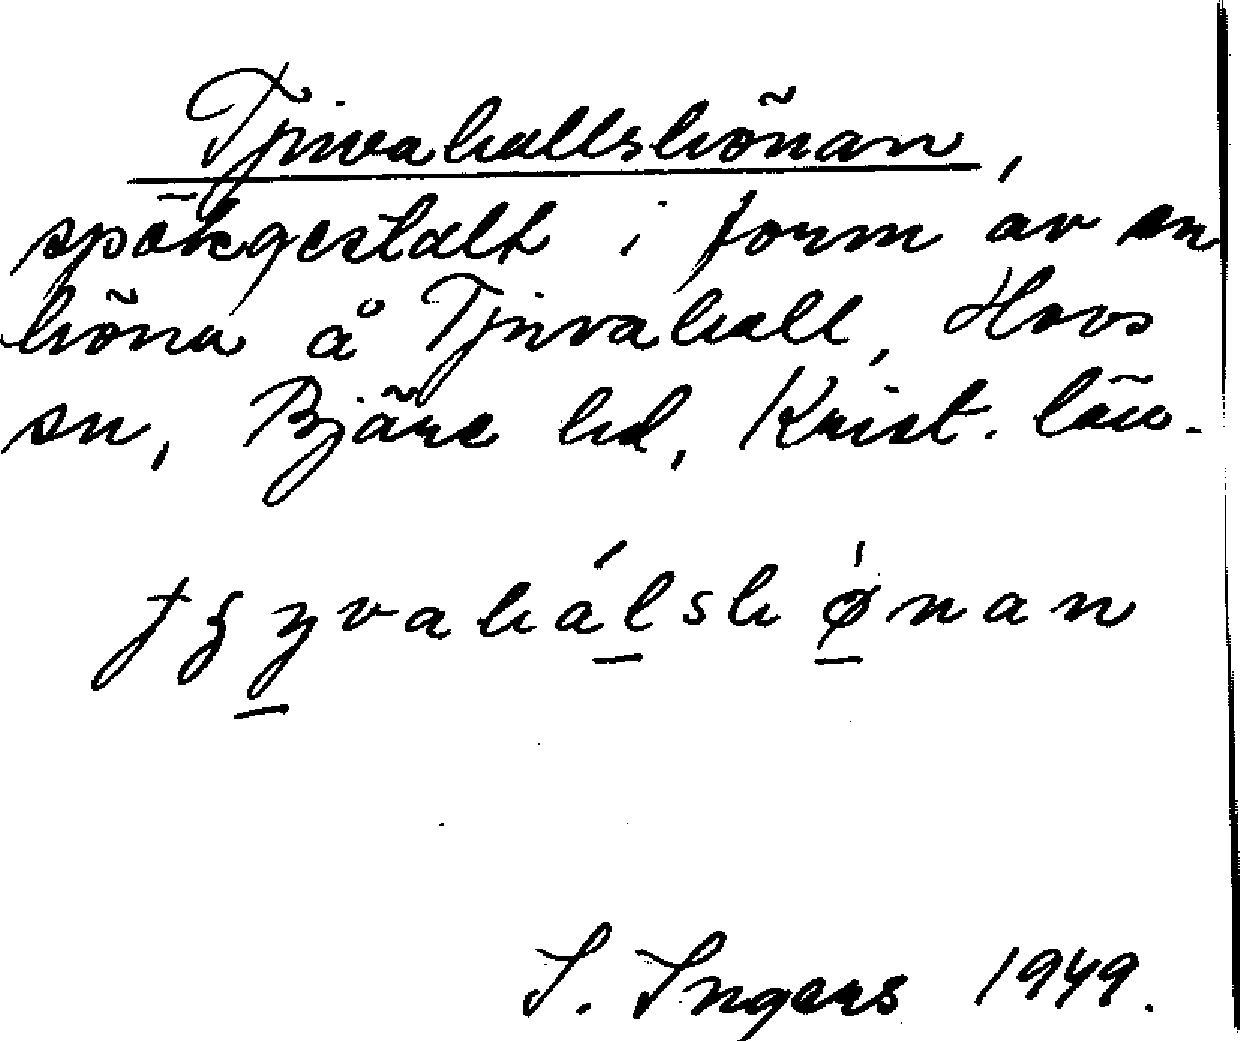 Tjivahallshönan,
spökgestalt i form av en
höna å Tjivahall, Hovs
sn, Bjäre hd, Krist. län.
S. Ingers 1949.